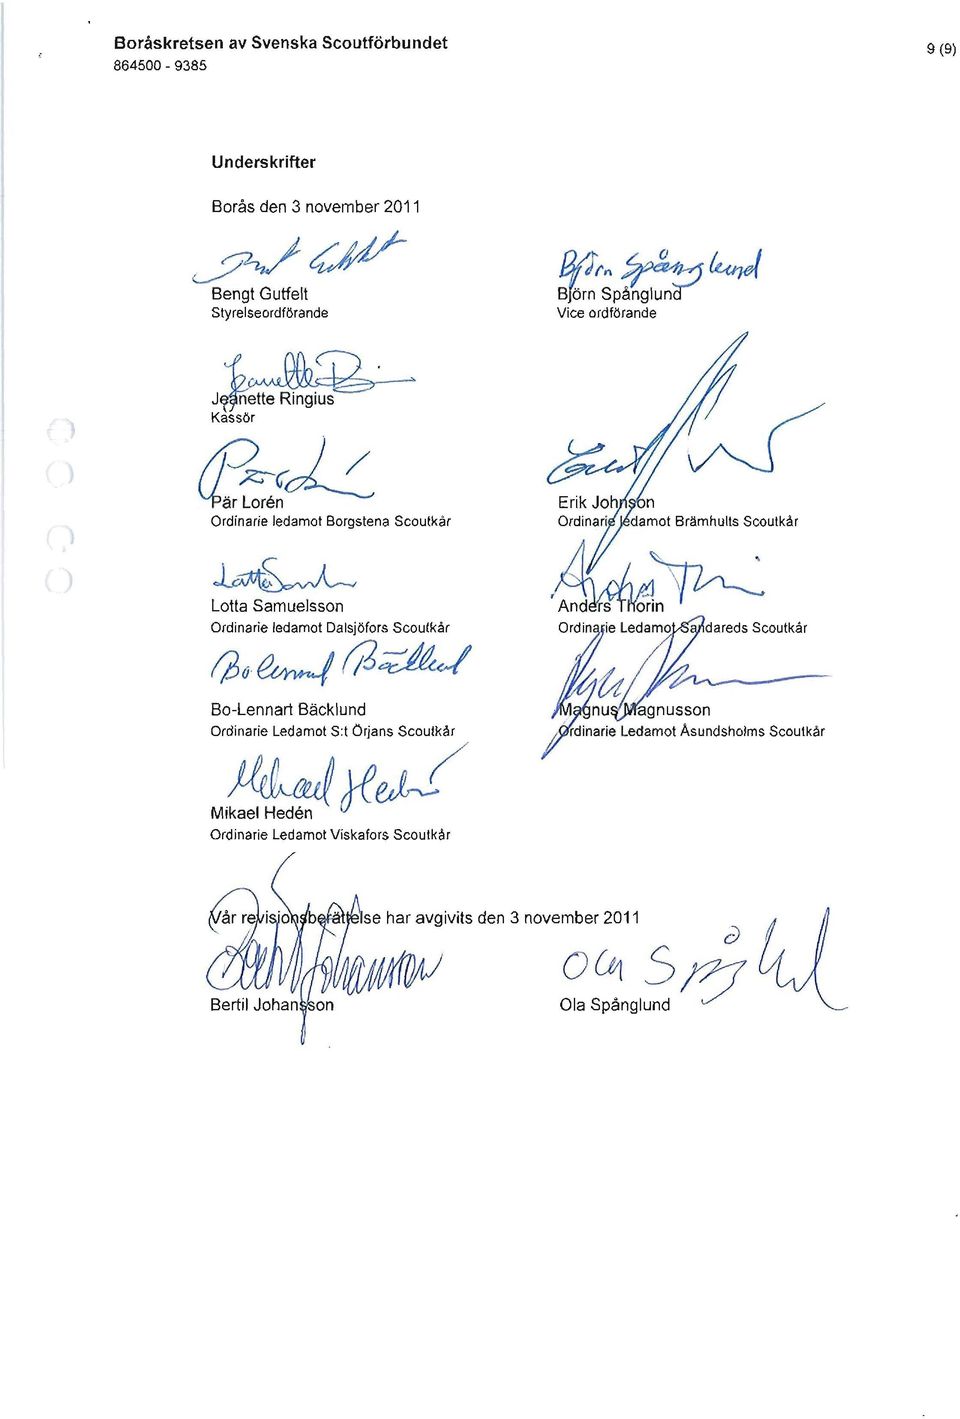 Boråskretsen av Svenska Scoutförbundet
864500 - 9385
9 (9)
Underskrifter
Borås den 3 november 2011
Bengt Gutfelt
Styrelseordförande
Björn Spånglund
Björn Spånglund
Vice ordförande
Jeanette
Jeanette Ringius
Kassör
Pär Lorén
Ordinarie ledamot Borgstena Scoutkår
Erik Johnson
Ordinarie ledamot Brämhults Scoutkår
Lotta
Lotta Samuelsson
Ordinarie ledamot Dalsjöfors Scoutkår
Anders
Anders Thorin
Ordinarie Ledamot Sandareds Scoutkår
Bo Lennart Bäcklund
Bo-Lennart Bäcklund
Ordinarie Ledamot S:t Örjans Scoutkår
Magnus Magnusson
Ordinarie Ledamot Åsundsholms Scoutkår
Mikael Hedén
Mikael Hedén
Ordinarie Ledamot Viskafors Scoutkår
Vår revisionsberättelse har avgivits den 3 november 2011
Bertil Johansson
Bertil Johansson
Ola Spånglund
Ola Spånglund